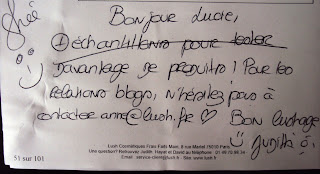 Bonjour Lucie,
échantillons pour tester
Davantage de produits ! Pour les
relations blogs, n'hésitez pas à
contacter anne@lush.fr ♡ Bon lushage
Lush Cosmétiques Frais Faits Main, 8 rue Martel 75010 Paris
Une question? Retrouvez Judith, Hayet et David au téléphone : 01 49 70 98 34
Email : service-client@lush.fr - Site: www.lush.fr
51 sur 101